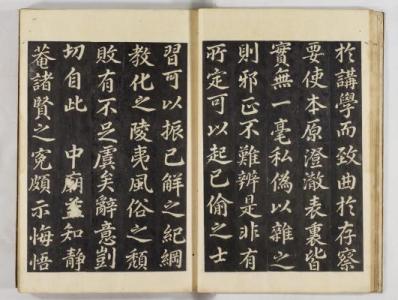 扵講學而致曲扵存察
要使本原澄澈表裏皆
實無一毫私僞以雜之
則邪正不難辨是非有
所定可以起已偷之士
習可以振已解之紀綱
教化之陵夷風俗之頹
敗有不足虞矣辭意剴
切自此 中廟益知靜
菴諸賢之冤頗示悔悟